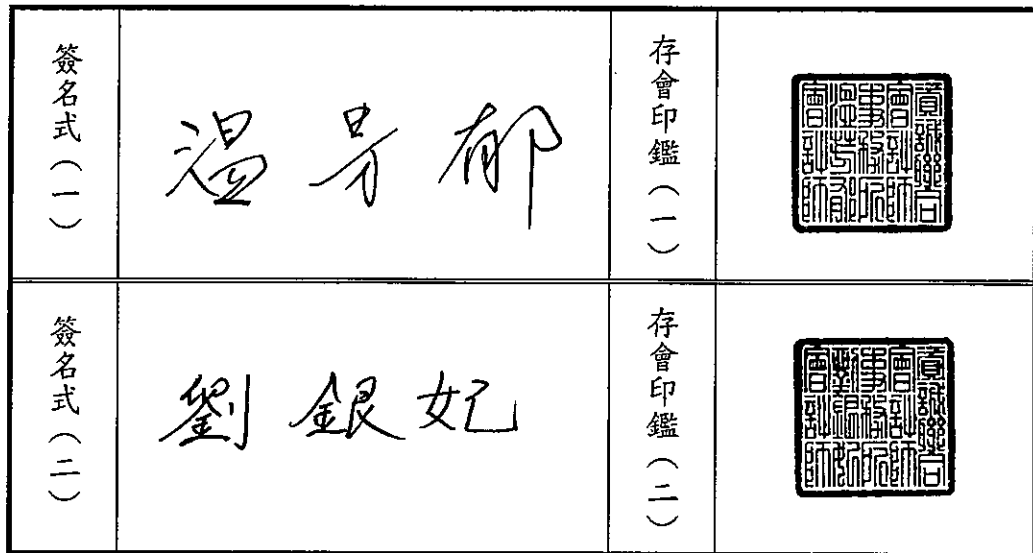 簽名式（一）
溫芳郁
存會印鑑（一）
資誠聯合
會計師
事務所
溫芳郁
會計師
簽名式（二）
劉銀妃
存會印鑑（二）
資誠聯合
會計師
事務所
劉銀妃
會計師